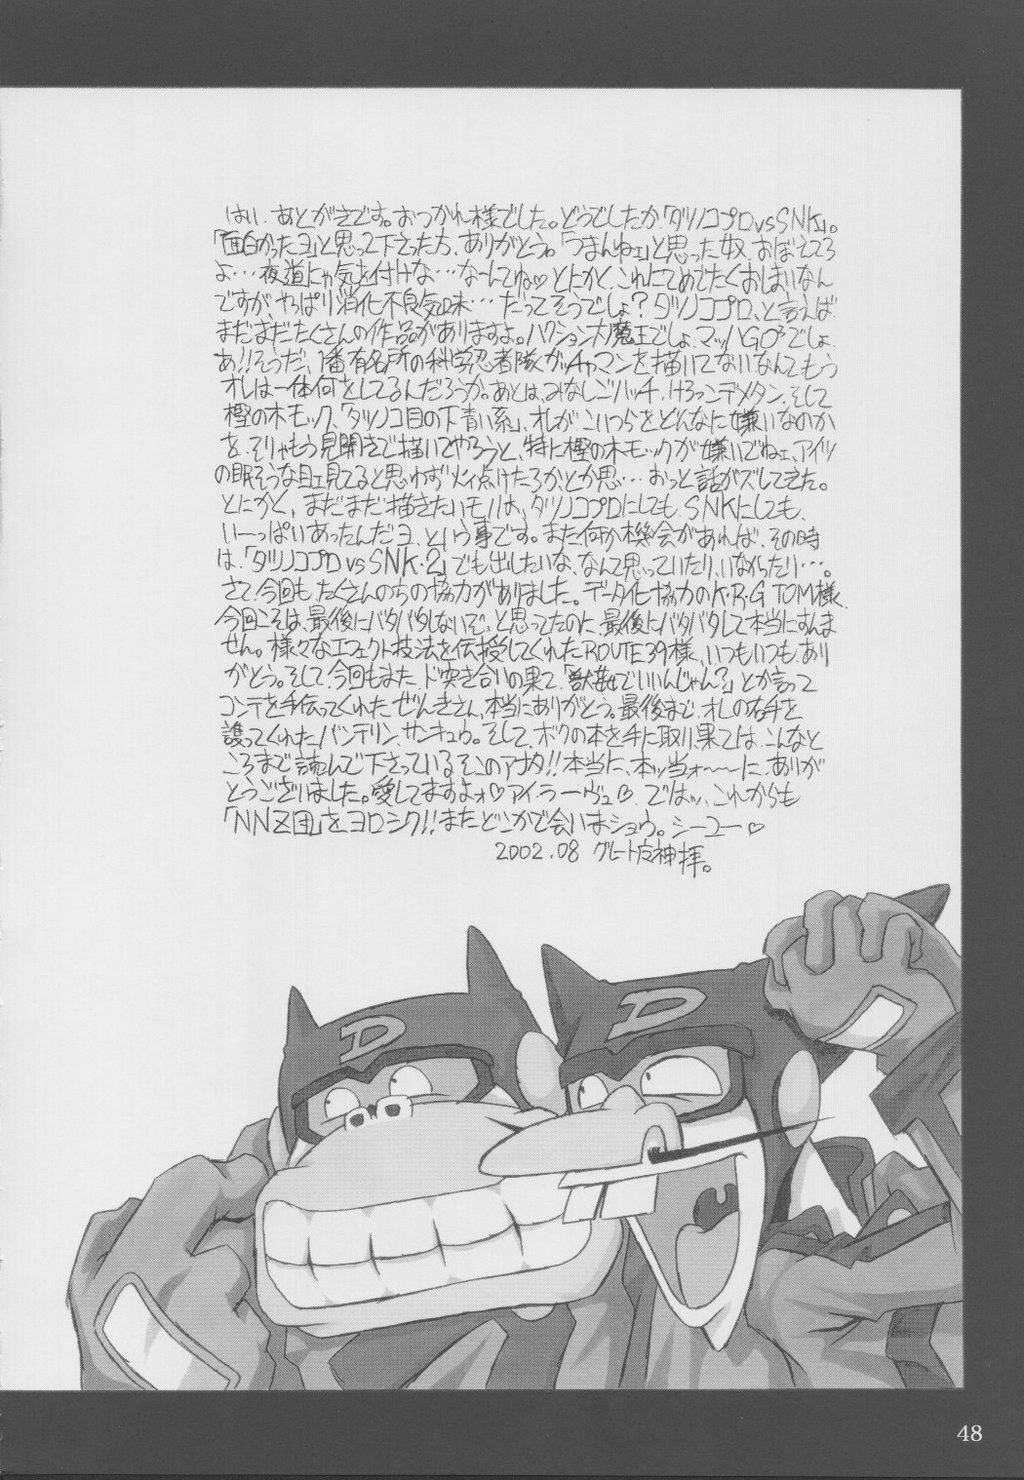 はい、あとがきです。おつかれ様でした。どうでしたか「タツノコプロVSSNK」。
「面白かったヨ」と思って下さった方、ありがとう。「つまんねェ」と思った奴、おぼえてろ
よ…夜道にゃ気を付けな…なーんてね♡とにかく、これにてめでたくおしまいなん
ですが、やっぱり消化不良気味…だってそうでしょ?タツノコプロ、と言えば
まだまだたくさんの作品がありますよ。ハクション大魔王でしょ、マッハGO³でしょ、
あ!!そうだ、1番有名所の科学忍者隊ガッチャマンを描いてないなんてもう
オレは一体何をしてるんだろうか。あとは、みなしごハッチ、けろっこデメタン、そして
樫の木モック、「タツノコ目の下青い系」、オレがこいつらをどんなに嫌いなのか
を、そりゃもう見開きで描いてやろうと、特に樫の木モックが嫌いでねェ、アイツ
の眠そうな目ェ見てると思わず火ィ点けたろか、とか思…おっと話がズレてきた。
とにかく、まだまだ描きたいモノは、タツノコプロにしても、SNKにしても、
いーっぱいあったんだヨ、という事です。また何か機会があれば、その時
は、「タツノコプロVSSNK・2」でも出したいな、なんて思っていたり、いなかったり…。
さて、今回もたくさんのちの協力がありました。データ化協力のK・R・G TOM様、
今回こそは、最後にバタバタしないぞ、と思ってたのに、最後にバタバタして本当にすんま
せん。様々なエフェクト技法を伝授してくれたROUTE39様、いつもいつもあり
がとう。そして、今回もまた、ド突き合いの果て、「獣姦でいいんじゃん?」とか言って
コンテを手伝ってくれたぜんきさん、本当にありがとう。最後まで、オレの右手を
護ってくれたバンテリン、サンキュウ。そして、ボクの本を手に取り、果ては、こんなと
ころまで読んで下さっているそこのアナタ!!本当に、本ッ当ォ〜〜〜に、ありが
とうございました。愛してますよォ♡アイラーヴュ♡ではッ、これからも
「NNZ団」をヨロシク!!またどこかで会いまショウ。シーユー♡
2002.08 グレート神拝。
D
D
48